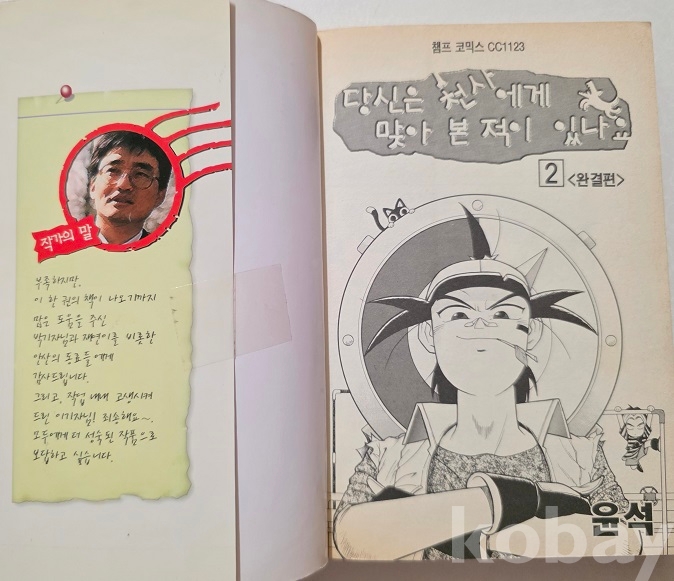 작가의 말
부족하지만,
이 한 권의 책이 나오기까지
많은 도움을 주신
박기자님과 재연이를 비롯한
안산의 동료들에게
감사드립니다.
그리고, 작업 내내 고생시켜
드린 이기자님! 죄송해요~.
모두에게 더 성숙된 작품으로
보답하고 싶습니다.
챔프 코믹스 CC1123
당신은 천사에게
맞아 본 적이 있나요
2 <완결편>
윤석
kobay